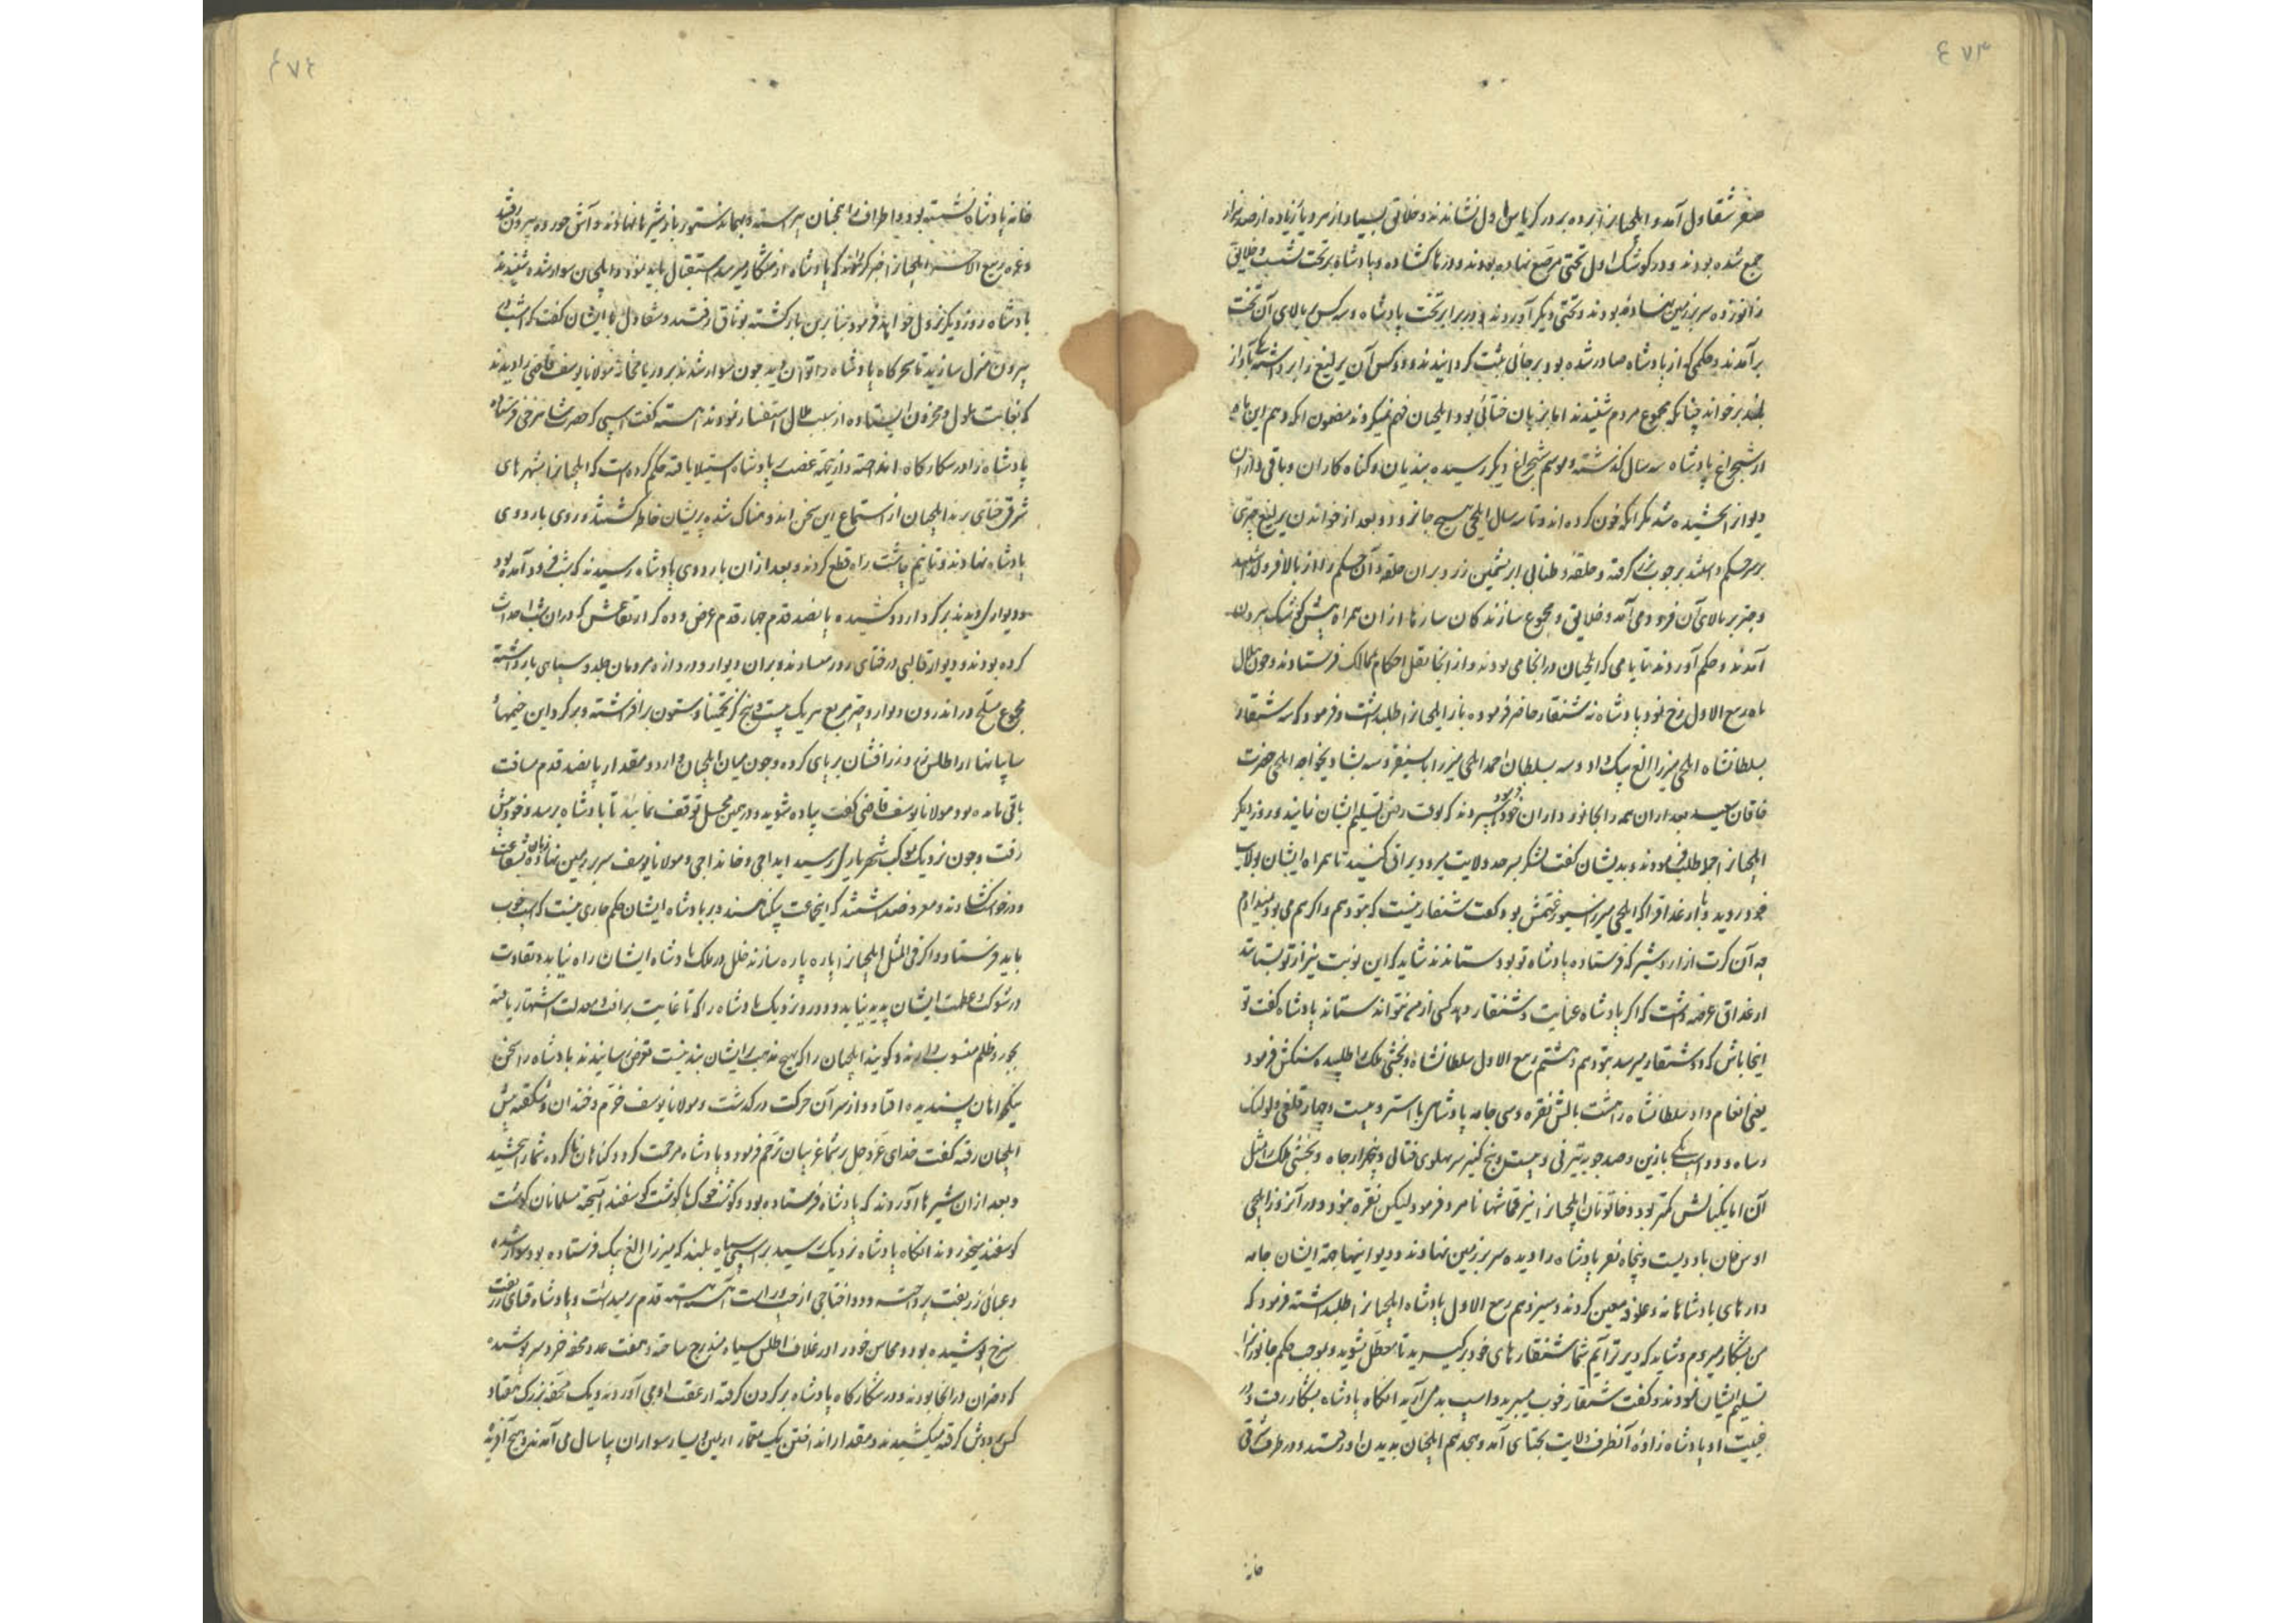 ٤٧٣
صفر شقاول آمد و ایلچیانرا برده بر در کریاس اول نشاندند و خلایق بسیار از مرد و زن زیاده از صد هزار
جمع شده بودند و در کوشک اول تختی مرصع نهاده بودند و درها کشاده و پادشاه بر تخت نشست خلایق
زانو زده سر بر زمین نهاده بودند و تختی دیگر آوردند و در برابر تخت پادشاه و سه کس بالای آن تخت
برآمدند و حکمی که از پادشاه صادر شده بود بر جائی مثبت گردانیدند و دو کس آن یرلیغ را برداشته بآواز
بلند بر خواند چنانکه مجموع مردم شنیدند اما بزبان ختائی بود ایلچیان فهم نمیکردند مضمون آنکه دهم این ماه
از شبچراغ پادشاه سه سال گذشته و موسم شبچراغ دیگر رسیده بندیان و گناه کاران و باقی داران
دیوانرا بخشیده شد مگر آنکه خون کرده اند و تا سه سال ایلچی هیچ جا نرود و بعد از خواندن یرلیغ چتری
بر سر حکم داشتند بر چوب بزر گرفته و حلقه و طنابی ابریشمین زرد بر آن حلقه و آن حکم را از بالا فرو گذاشتند
و چتر بر بالای آن فرود می آمد و خلایق و مجموع سازندکان سازها از آن همراه پیش کوشک بیرون
آمدند و حکم آوردند تا یامی که ایلچیان در آنجا می بودند و از آنجا نقل احکام بممالک فرستادند و چون هلال
ماه ربیع الاول رخ نمود پادشاه ده شنقار حاضر فرموده باز ایلچیانرا طلب داشت و فرمود که سه شنقار
بسلطانشاه ایلچی میرزا الغ بیک داد و سه بسلطان احمد ایلچی میرزا بایسنغر و سه بشادیخواجه ایلچی حضرت
خاقان سعید بعد از آن همه را بجانور داران خود سپردند که بوقت رفتن تسلیم ایشان نمایند و روز دیگر
ایلچیانرا طلب فرمودند و بدیشان گفت لشکر بسرحد ولایت میرود یراق کنید تا همراه ایشان بولایت
خود روید و بارغداق را که ایلچی میرزا سیورغتمش بود گفت شنقار نیست که بتو دهم و اگر هم می بود نمیدادم
چه آن کرت از اردشیر که فرستاده پادشاه تو بود ستاندند شاید که این نوبت نیز از تو بستانند
ارغداق عرضه داشت که اگر پادشاه عنایت و شنقار دهد کسی از من نتواند ستاند پادشاه گفت تو
اینجا باش که دو شنقار میرسد بتو دهم و هشتم ربیع الاول سلطانشاه و بخشی ملک را طلبیده سنکش فرمود
یعنی انعام داد سلطانشاه را هشت بالش نقره و سی جامه پادشاهی با استر و بیست و چهار قلغی و لولنک
و ساه و دو اسپ یکی با زین و صد چوبه تیر نی و بیست و پنج کنبر سه پهلوی ختائی و پنجهزار جاه و بخشی ملک را مثل
آن اما یکبالش کمتر بود و خاتونان ایلچیانرا نیز قماشها نامزد فرمود لیکن نقره نبود و در آنروز ایلچی
اویس خان با دویست و پنجاه نفر پادشاه را دیده سر بر زمین نهادند و دیوانیها جهت ایشان جامه
دارهای پادشاهانه و علوفه معین کردند و سیزدهم ربیع الاول پادشاه ایلچیانرا طلب داشته فرمود که
من بشکار میروم و شاید که دیرتر آیم شما شنقارهای خود بر گیرید تا معطل نشوید و بموجب حکم جانورانرا
تسلیم ایشان نمودند و گفت شنقار خوب میبرید و اسپ بد می آرید آنگاه پادشاه بشکار رفت و در
غیبت او پادشاه زاده از طرف ولایت بختای آمد و هجدهم ایلچیان بدیدن او رفتند و در طرف شرقی
خانه
٤٧٤
خانه پادشاه نشسته بود و اطراف را همچنان بر آراسته و بهمان دستور پادشاه شیره ها نهادند و آش خورده بیرون رفتند
و غره ربیع الآخر ایلچیانرا خبر کردند که پادشاه از شکار میرسد استقبال باید نمود و ایلچیان سوار شده شنیدند
پادشاه روز دیگر نزول خواهد فرمود بنابرین باز گشته بوثاق رفتند و شقاول با ایشان گفت که امشب
بیرون منزل سازید تا سحرگاه پادشاه را توان دید چون سوار شدند بر در یامخانه مولانا یوسف قاضی را دیدند
که بغایت ملول و محزون ایستاده از سبب ملال استفسار نمودند آهسته گفت اسپی که حضرت شاهرخی فرستاده
پادشاه را در شکارگاه انداخته و از تتمه غضب پادشاه استیلا یافته حکم کرده است که ایلچیانرا بشهرهای
شرقی ختای برند ایلچیان از استماع این سخن اندوهناک شده پریشان خاطر گشتند و روی باردوی
پادشاه نهادند و تا نیم چاشت راه قطع کردند و بعد از آن باردوی پادشاه رسیدند که شب فرود آمده بود
و دیوار دیدند بر گرد اردو کشیده پانصد قدم چهار قدم عرض و ده گز ارتفاعش که در آن شب احداث
کرده بودند و دیوار قالبی در ختای زود میسازند و بر آن دیوار دو دروازه و مردمان جلد و سپاهی بازداشته
مجموع مسلح و در اندرون دیوار دو چتر مربع هر یک بیست و پنج گز تخمینا و ستون بر افراشته و بر گرد این خیمها
سایبانها از اطلس زرد زر افشان بر پای کرده و چون میان ایلچیان و اردو مقدار پانصد قدم مسافت
باقی مانده بود مولانا یوسف قاضی گفت پیاده شوید و در همین محل توقف نمایید تا پادشاه برسد و خود پیش
رفت و چون نزدیک موکب شهریاری رسید لیداجی و جاندا جی و مولانا یوسف سر بر زمین نهاده زبان شفاعت
و درخواست کشادند و معروض داشتند که اینجماعت بیگناهند و بر پادشاه ایشان حکم جاری نیست که اسپ خوب
باید فرستاد و اگر فی المثل ایلچیانرا پاره پاره سازند خلل در ملک پادشاه ایشان راه نیابد و تفاوت
در شوکت و عظمت ایشان پدید نیاید و دور و نزدیک پادشاه را که تا غایت برأفت و معدلت اشتهار یافته
بجور و ظلم منسوب دارند و گویند ایلچیان را که بهیچ مذهب بر ایشان بند نیست تعرض رسانیدند پادشاه را سخن
نیکخواهان پسندیده افتاد و از سر آن حرکت درگذشت و مولانا یوسف خرم و خندان و شکفته پیش
ایلچیان رفته گفت خدای عز و جل بر شما غریبان ترحم فرمود و پادشاه مرحمت کرد و گناهان ناکرده شما را بخشید
و بعد از آن شیره ها آوردند که پادشاه فرستاده بود و گوشت خوک با گوشت گوسفند آمیخته مسلمانان گوشت
گوسفند میخوردند آنگاه پادشاه نزدیک رسید بر اسپی سیاه بلند که میرزا الغ بیک فرستاده بود سوار شده
و عبائی زربفت پرداخته و دو اختاجی از چپ و راست آهسته آهسته قدم بر میداشت و پادشاه قبای زربفت
سرخ پوشیده بود و محاسن خود را در غلاف اطلس سیاه مندرج ساخته و هفت عدد محفه خرد سر پوشیده
که دختران در آنجا بودند و در شکارگاه پادشاه بر گردن گرفته از عقب او می آوردند و یک محفه بزرگ هفتاد
کس بر دوش گرفته میکشیدند و مقدار انداختن یک تیر از یمین و یسار سواران یسال می آمدند و هیچ آفریده